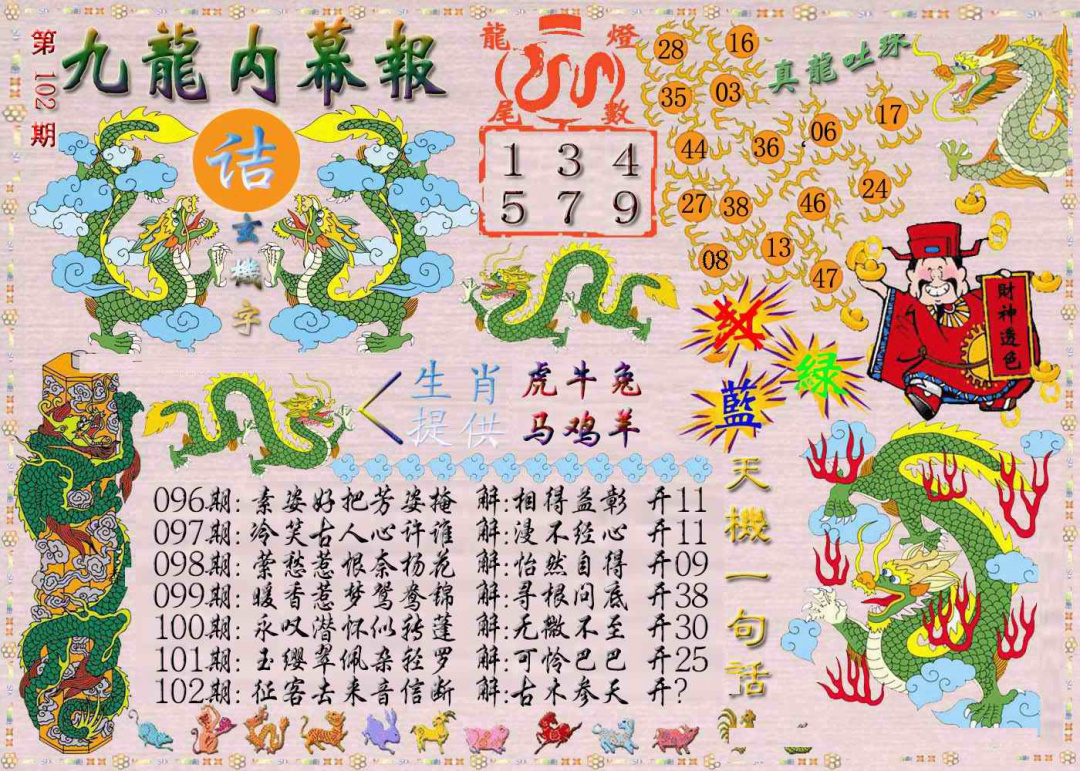 第102期
九龍内幕報
诘
玄機字
龍燈
尾數
1 3 4
5 7 9
真龍吐珠
28 16
35 03
44 36 06 17
27 38 46 24
08 13 47
紅
綠
藍
財神透色
生肖 虎牛兔
提供 马鸡羊
天機一句话
096期:素姿好把芳姿掩 解:相得益彰 开11
097期:冷笑古人心许谁 解:漫不经心 开11
098期:萦愁惹恨奈杨花 解:怡然自得 开09
099期:暖香惹梦鸳鸯锦 解:寻根问底 开38
100期:永叹潜怀似转蓬 解:无微不至 开30
101期:玉缨翠佩杂轻罗 解:可怜巴巴 开25
102期:征客去来音信断 解:古木参天 开?